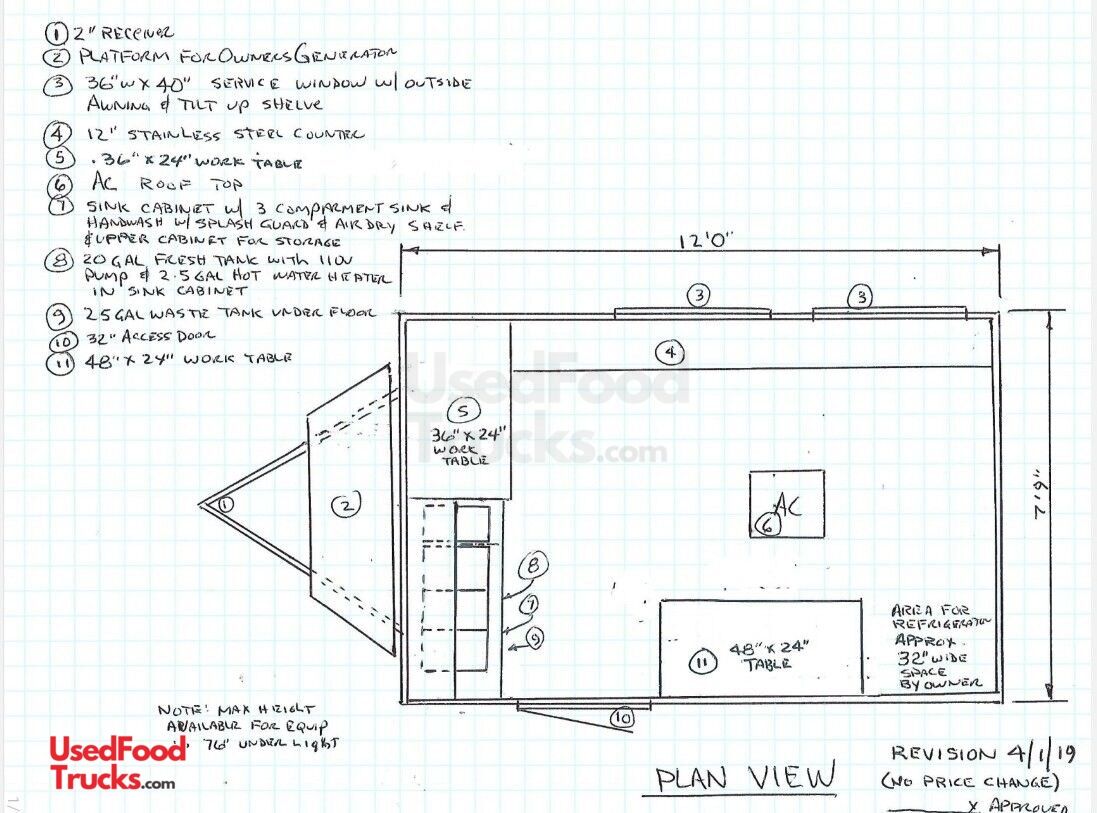 ① 2" RECEIVER
② PLATFORM FOR OWNERS GENERATOR
③ 36"W X 40" SERVICE WINDOW W/ OUTSIDE
AWNING & TILT UP SHELVE
④ 12" STAINLESS STEEL COUNTER
⑤ .36" X 24" WORK TABLE
⑥ AC ROOF TOP
⑦ SINK CABINET W/ 3 COMPARMENT SINK &
HANDWASH W/ SPLASH GUARD & AIR DRY SHELF
& UPPER CABINET FOR STORAGE
⑧ 20 GAL FRESH TANK WITH 110V
PUMP & 2.5 GAL HOT WATER HEATER
IN SINK CABINET
⑨ 25 GAL WASTE TANK UNDER FLOOR
⑩ 32" ACCESS DOOR
⑪ 48" X 24" WORK TABLE
12'0"
③ ③
④
UsedFood
Trucks.com
⑤
36" X 24"
WORK
TABLE
① ②
AC
⑥
7'9"
⑧
⑦
⑨
⑪ 48" X 24"
TABLE
AREA FOR
REFRIGERATOR
APPROX.
32" WIDE
SPACE
BY OWNER
⑩
NOTE: MAX HEIGHT
AVAILABLE FOR EQUIP
76" UNDER LIGHT
UsedFood
Trucks.com
PLAN VIEW
REVISION 4/1/19
(NO PRICE CHANGE)
X APPROVED